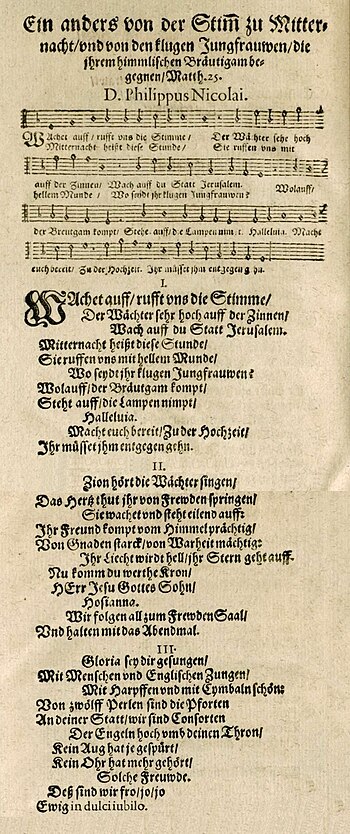 Ein anders von der Stim̃ zu Mitter-
nacht/vnd von den klugen Jungfrauwen/die
jhrem himmlischen Bräutigam be-
gegnen/Matth.25.
D. Philippus Nicolai.
WAchet auff/ rufft vns die Stimme/ Der Wächter sehr hoch
Mitternacht heißt diese Stunde/ Sie ruffen vns mit
auff der Zinnen/ Wach auff du Statt Jerusalem. Wolauff/
hellem Munde/ Wo seydt jhr klugen Jungfrauwen?
der Breutgam kompt/ Steht auff/die Lampen nimpt. Halleluia. Macht
euch bereit/ Zu der Hochzeit. Ihr müsset jhm entgegen gehn.
I.
WAchet auff/ rufft vns die Stimme/
Der Wächter sehr hoch auff der Zinnen/
Wach auff du Statt Jerusalem.
Mitternacht heißt diese Stunde/
Sie ruffen vns mit hellem Munde/
Wo seydt jhr klugen Jungfrauwen?
Wolauff/der Bräutgam kompt/
Steht auff/die Lampen nimpt/
Halleluia.
Macht euch bereit/Zu der Hochzeit/
Ihr müsset jhm entgegen gehn.
II.
Zion hört die Wächter singen/
Das Hertz thut jhr von Frewden springen/
Sie wachet vnd steht eilend auff:
Ihr Freund kompt vom Himmel prächtig/
Von Gnaden starck/von Warheit mächtig:
Ihr Liecht wirdt hell/jhr Stern geht auff.
Nu komm du werthe Kron/
HErr Jesu Gottes Sohn/
Hosianna.
Wir folgen all zum Frewden Saal/
Vnd halten mit das Abendmal.
III.
Gloria sey dir gesungen/
Mit Menschen vnd Englischen Zungen/
Mit Harpffen vnd mit Cymbaln schön:
Von zwölff Perlen sind die Pforten
An deiner Statt/wir sind Consorten
Der Engeln hoch vmb deinen Thron/
Kein Aug hat je gespürt/
Kein Ohr hat mehr gehört/
Solche Freuwde.
Deß sind wir fro/jo/jo
Ewig in dulci iubilo.